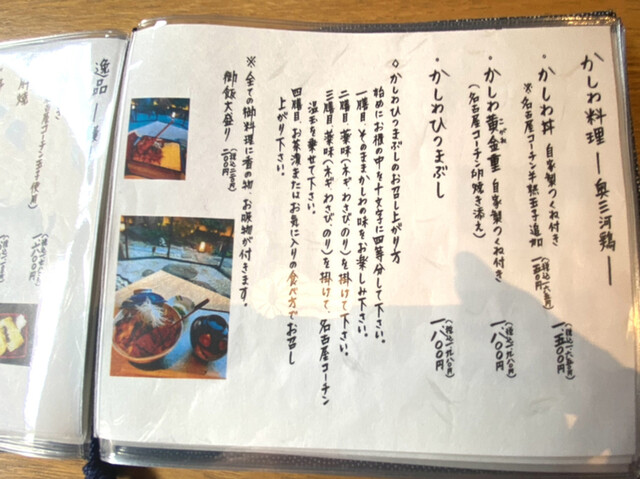 かしわ料理 ー奥三河鶏ー
・かしわ丼 自家製つくね付き
(税込一六五〇円)
一五〇〇円
※名古屋コーチン半熟玉子追加
一五〇円
・かしわ黄金重 自家製つくね付き
こがね
(名古屋コーチン卵焼き添え)
(税込一九八〇円)
一八〇〇円
・かしわひつまぶし
(税込一九八〇円)
一八〇〇円
◇かしわひつまぶしのお召し上がり方
始めにお櫃の中を十文字に四等分して下さい。
一膳目、そのままかしわの味をお楽しみ下さい。
二膳目、薬味(ネギ、わさび、のり)を掛けて下さい。
三膳目、薬味(ネギ、わさび、のり)を掛けて、名古屋コーチン
温玉を乗せて下さい。
四膳目、お茶漬またはお気に入りの食べ方でお召し
上がり下さい。
※全ての御料理に香の物、お吸物が付きます。
御飯大盛り
(税込二二〇円)
二〇〇円
逸品 ー
玉子使用)